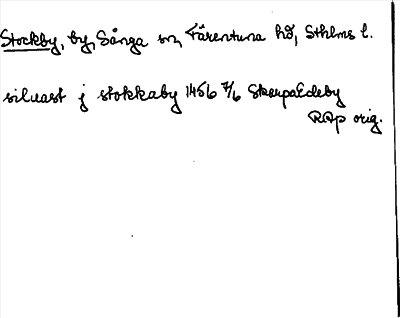 Stockby, by, Sånga sn, Färentuna hd, Sthlms l.
siluast j stokkaby 1456 7/6 SkerpaEdeby
RAp orig.